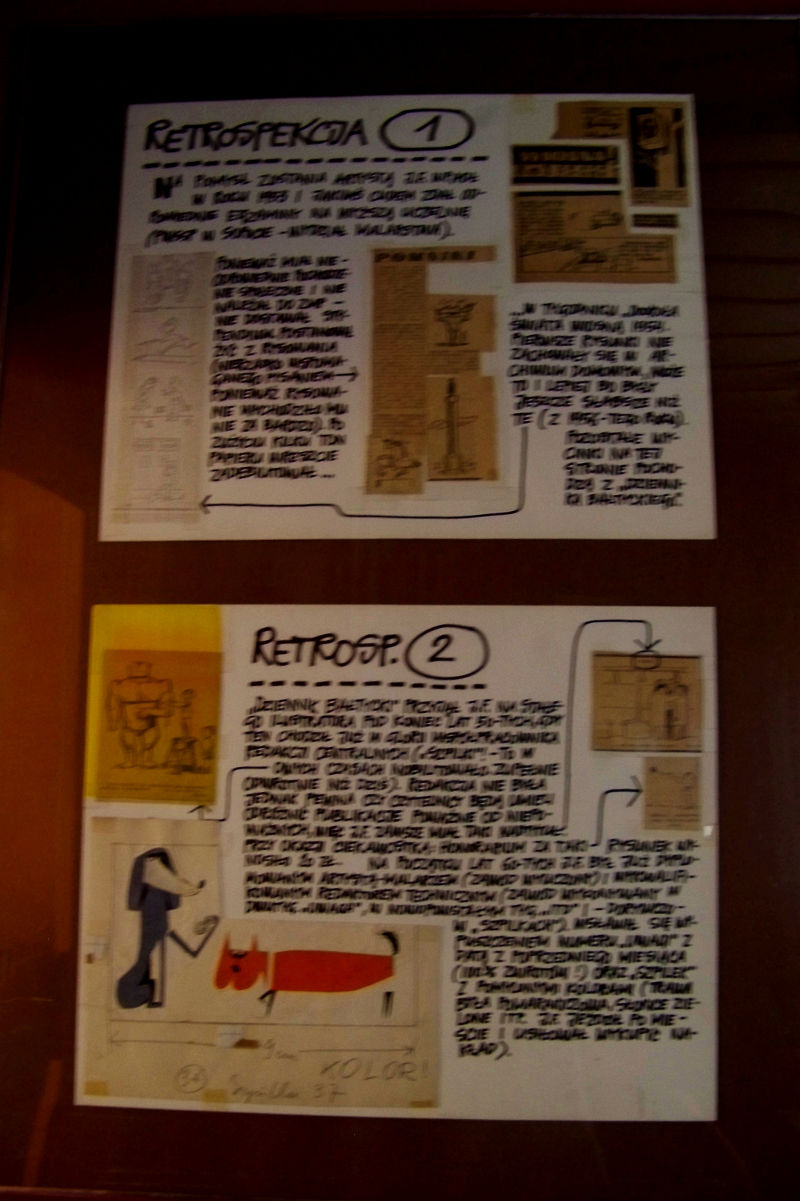 RETROSPEKCJA 1
NA POMYSŁ ZOSTANIA ARTYSTĄ J.F. WPADŁ
W ROKU 1953 I JAKIMŚ CUDEM ZDAŁ OD-
POWIEDNIE EGZAMINY NA WYŻSZĄ UCZELNIĘ
(PWSSP W SOPOCIE - WYDZIAŁ MALARSTWA).
PONIEWAŻ MIAŁ NIE-
ODPOWIEDNIE POCHODZE-
NIE SPOŁECZNE I NIE
NALEŻAŁ DO ZMP -
NIE DOSTAWAŁ STY-
PENDIUM. POSTANOWIŁ
ŻYĆ Z RYSOWANIA
(NIERZADKO WSPOMA-
GANEGO PISANIEM →
PONIEWAŻ RYSOWA-
NIE WYCHODZIŁO MU
NIE ZA BARDZO). PO
ZUŻYCIU KILKU TON
PAPIERU WRESZCIE
ZADEBIUTOWAŁ...
POMYJE
„W TYGODNIKU „DOOKOŁA
ŚWIATA WIOSNĄ 1954.
PIERWSZE RYSUNKI NIE
ZACHOWAŁY SIĘ W AR-
CHIWUM DOMOWYM, MOŻE
TO I LEPIEJ BO BYŁY
JESZCZE SŁABSZE NIŻ
TE (Z 1954-TEGO ROKU).
POZOSTAŁE WY-
CINKI NA TEJ
STRONIE POCHO-
DZĄ Z „DZIENNI-
KA BAŁTYCKIEGO".
RETROSP. 2
„DZIENNIK BAŁTYCKI" PRZYJĄŁ J.F. NA STAŁE-
GO ILUSTRATORA POD KONIEC LAT 50-TYCH, GDY
TEN CHODZIŁ JUŻ W GLORII WSPÓŁPRACOWNIKA
REDAKCJI CENTRALNYCH („SZPILKI"! - TO W
OWYCH CZASACH NOBILITOWAŁO ZUPEŁNIE
ODWROTNIE NIŻ DZIŚ). REDAKCJA NIE BYŁA
JEDNAK PEWNA CZY CZYTELNICY BĘDĄ UMIELI
ODRÓŻNIĆ PUBLIKACJE POWAŻNE OD NIEPO-
WAŻNYCH, WIĘC J.F. ZAWSZE MIAŁ TAKI NADTYTUŁ
PRZY OKAZJI CIEKAWOSTKA: HONORARIUM ZA TAKI RYSUNEK WY-
NOSIŁO 20 ZŁ. NA POCZĄTKU LAT 60-TYCH J.F. BYŁ JUŻ DYPLO-
MOWANYM ARTYSTĄ-MALARZEM (ZAWÓD WYUCZONY) I WYKWALIFI-
KOWANYM REDAKTOREM TECHNICZNYM (ZAWÓD WYKONYWANY W
DWUTYG. „UWAGA", W NOWOPOWSTAŁYM TYG. „ITD" I - DORYWCZO -
W „SZPILKACH"). WSŁAWIŁ SIĘ WY-
PUSZCZENIEM NUMERU „UWAGI" Z
DATĄ Z POPRZEDNIEGO MIESIĄCA
(100% ZWROTÓW!) ORAZ „SZPILEK"
Z POMYLONYMI KOLORAMI (TRAWA
BYŁA POMARAŃCZOWA, SŁOŃCE ZIE-
LONE ITP. J.F. JEŹDZIŁ PO MIE-
ŚCIE I USIŁOWAŁ WYKUPIĆ NA-
KŁAD).
9 cm
KOLOR!
Szpilki 37